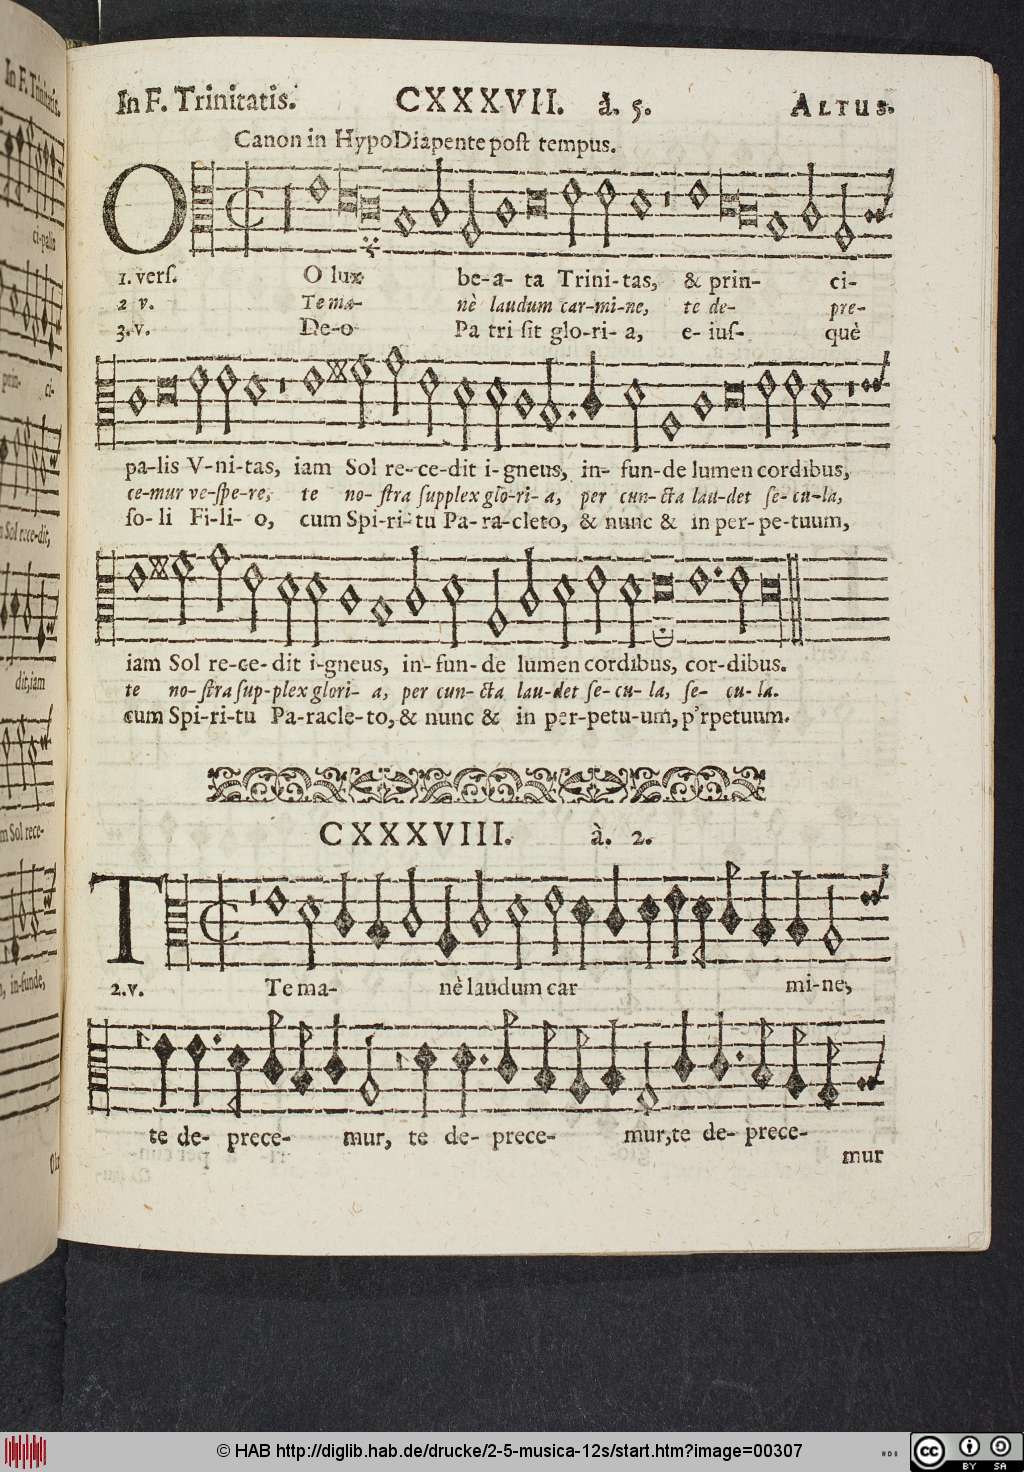 In F. Trinitatis. CXXXVII. à. 5. ALTUS.
Canon in HypoDiapente post tempus.
O
1. vers. O lux be-a- ta Trini-tas, & prin- ci-
2 v. Te ma- nè laudum car-mi-ne, te de- pre-
3. v. De-o Pa tri sit glo-ri- a, e- ius- què
pa-lis V-ni-tas, iam Sol re-ce-dit i-gneus, in- fun-de lumen cordibus,
ce-mur ve-spe-re, te no- stra supplex glo-ri- a, per cun-cta lau-det se-cu-la,
so- li Fi-li- o, cum Spi-ri-tu Pa-ra-cleto, & nunc & in per-pe-tuum,
iam Sol re-ce-dit i-gneus, in-fun-de lumen cordibus, cor-dibus.
te no-stra sup-plex glori- a, per cun-cta lau-det se-cu-la, se- cu-la.
cum Spi-ri-tu Pa-racle-to, & nunc & in per-petu-um, p'rpetuum.
CXXXVIII. à. 2.
T
2. v. Te ma- nè laudum car mi-ne,
te de- prece- mur, te de- prece- mur, te de- prece-
mur
In F. Trinitatis.
ci-palis
prin- ci-
Sol rece-dit,
dit, iam
Sol rece-
in-funde,
© HAB http://diglib.hab.de/drucke/2-5-musica-12s/start.htm?image=00307
cc BY SA